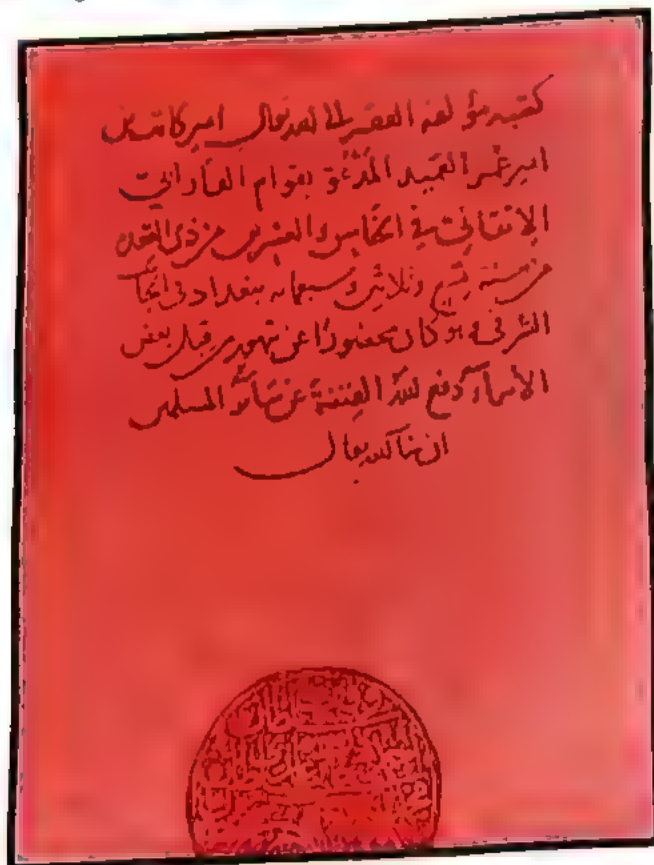 كتبه مؤلفه الفقير الى الله تعالى امير كاتب بن
امير عمر العميد المدعو بقوام الفارابي
الاتقاني في الخامس والعشرين من ذي القعدة
من سنة تسع وثلاثين وسبعمائة ببغداد في الجانب
الشرقي وهو كان محصورا من قبل بعض
الأمراء دفع الله الفتنة عن سائر المسلمين
ان شاء الله تعالى